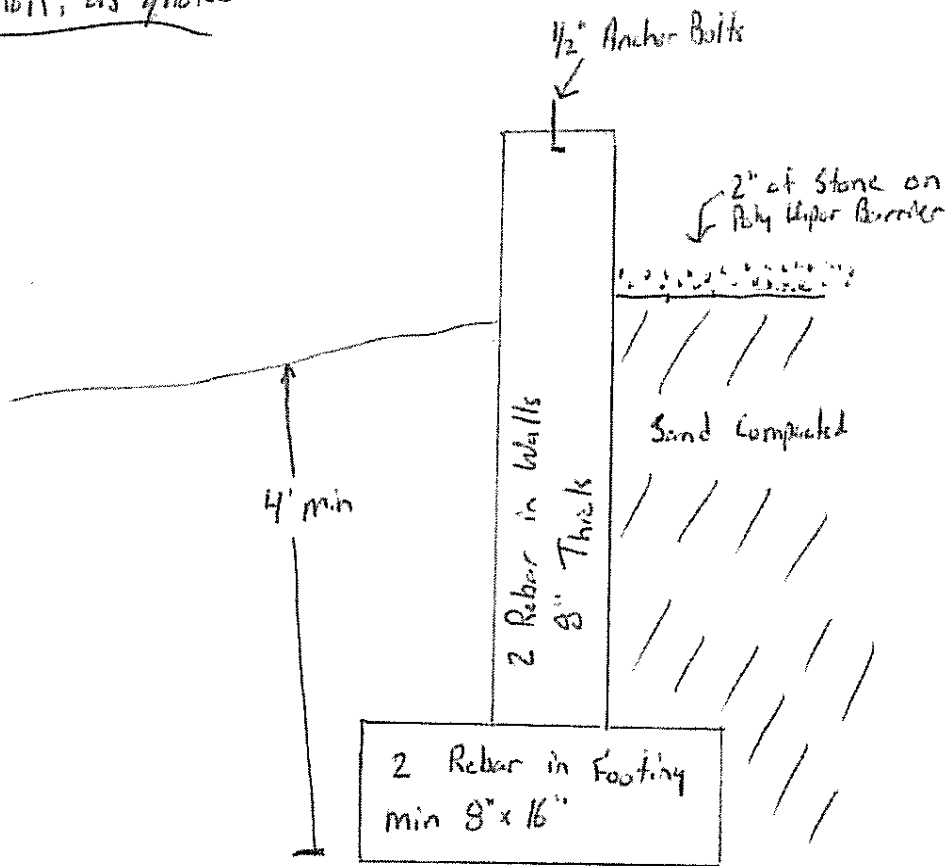 1/2" Anchor Bolts
2" of Stone on
Poly Vapor Barrier
Sand Compacted
4' min
2 Rebar in Walls
8" Thick
2 Rebar in Footing
min 8" x 16"